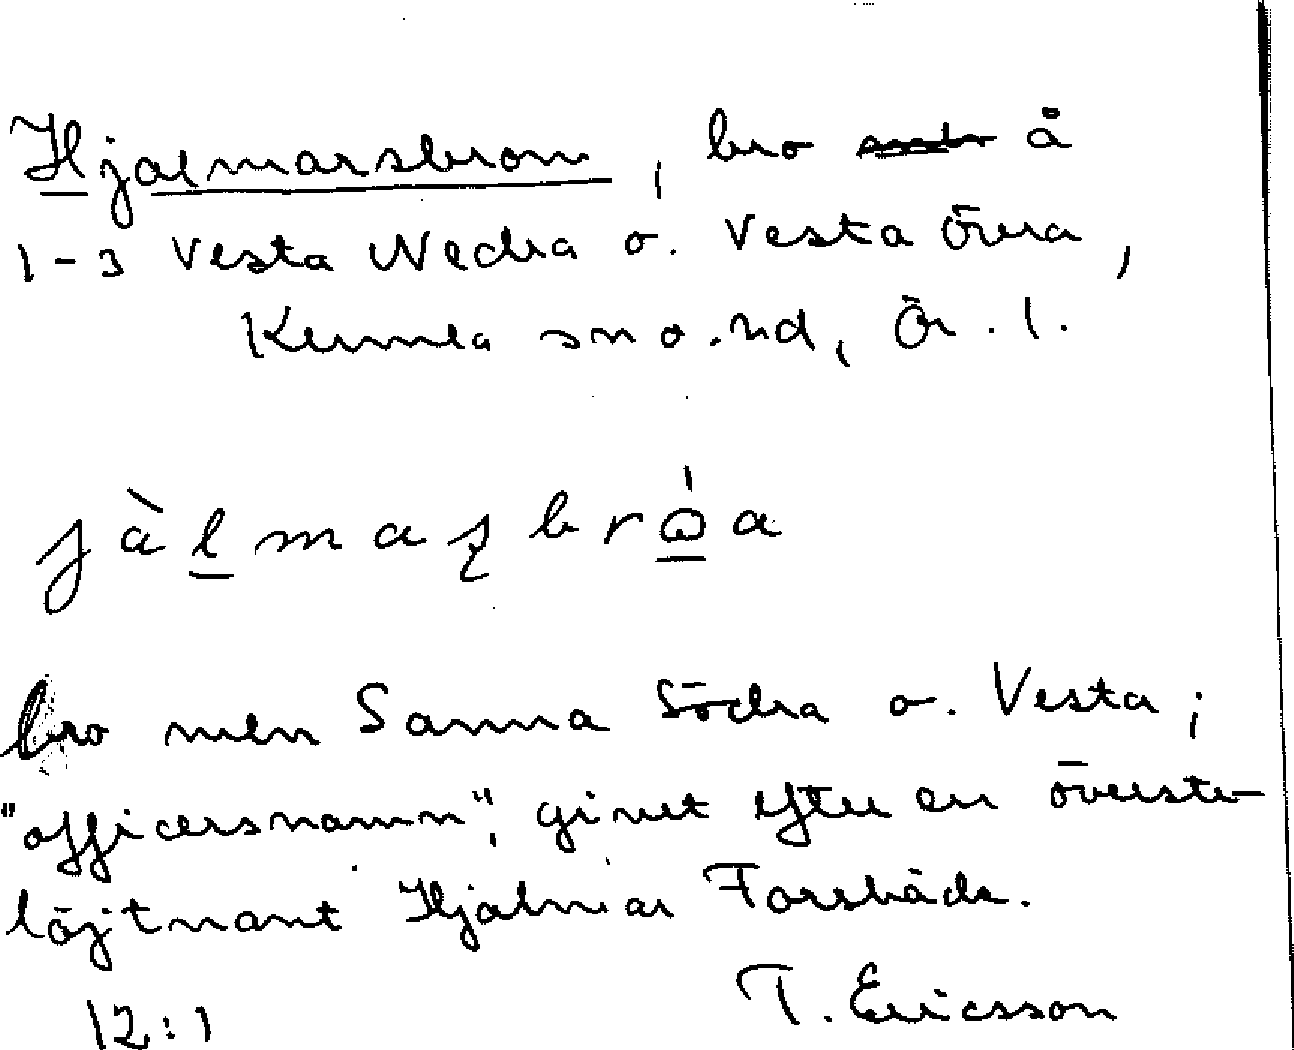 Hjalmarsbron, bro å
1-3 Vesta Nedra o. Vesta Övra,
Kumla sn o. hd, Ör. l.
jàḻmaʂbrɷ̠́a
bro mln Sanna Södra o. Vesta;
"officersnamn", givet efter en överste-
löjtnant Hjalmar Forsbäde.
12:1 T. Ericsson